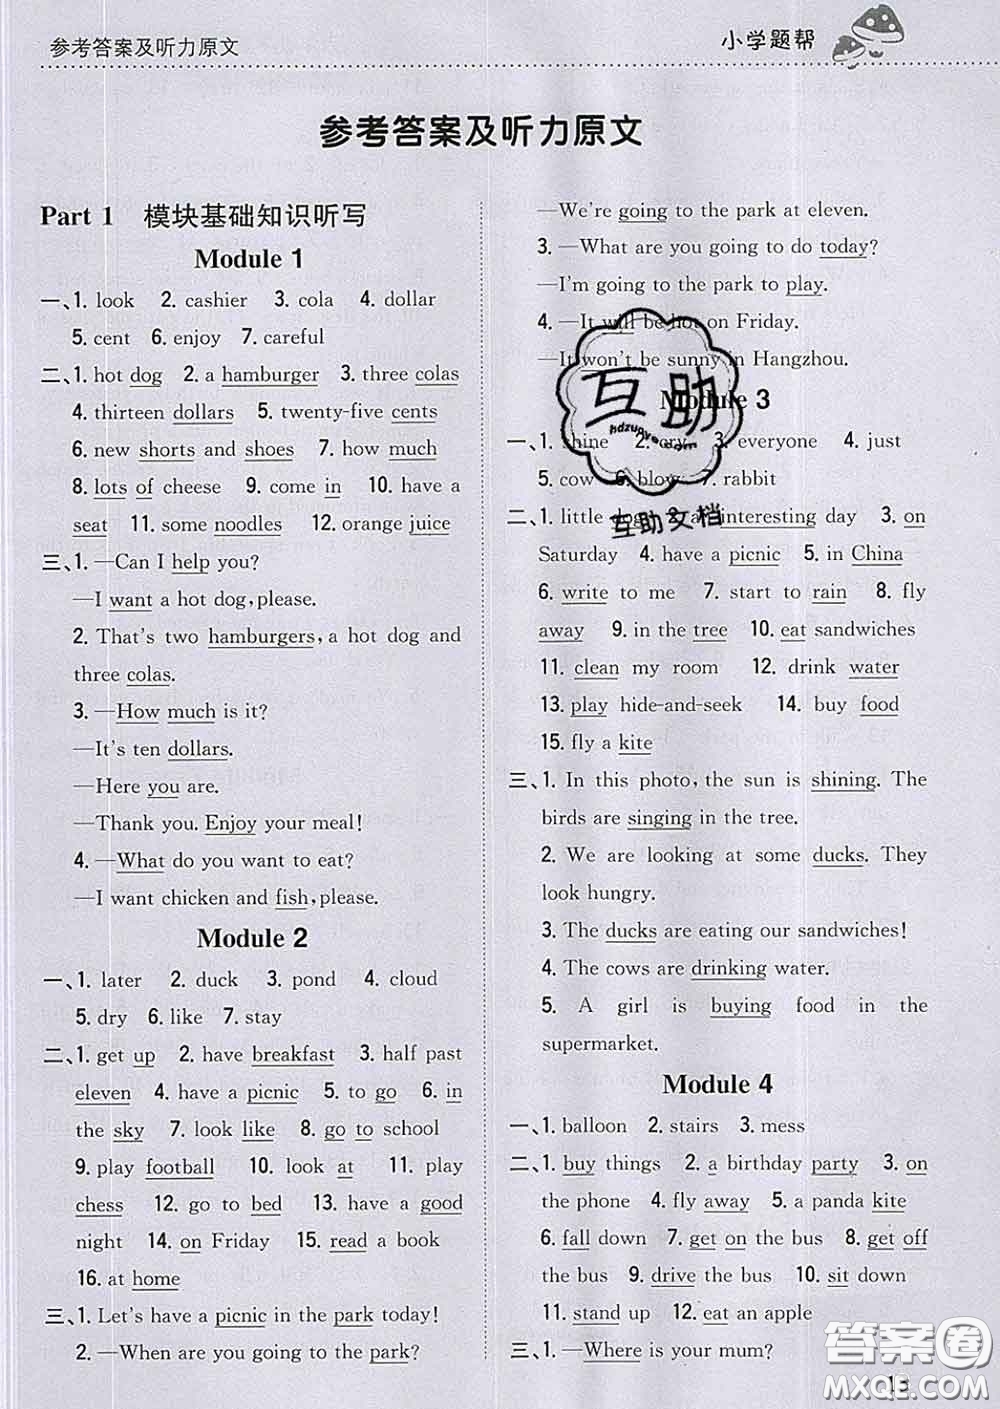 参考答案及听力原文
小学题帮
参考答案及听力原文
Part 1 模块基础知识听写
Module 1
一、1. look 2. cashier 3. cola 4. dollar
5. cent 6. enjoy 7. careful
二、1. hot dog 2. a hamburger 3. three colas
4. thirteen dollars 5. twenty-five cents
6. new shorts and shoes 7. how much
8. lots of cheese 9. come in 10. have a
seat 11. some noodles 12. orange juice
三、1. —Can I help you?
—I want a hot dog, please.
2. That's two hamburgers, a hot dog and
three colas.
3. —How much is it?
—It's ten dollars.
—Here you are.
—Thank you. Enjoy your meal!
4. —What do you want to eat?
—I want chicken and fish, please.
Module 2
一、1. later 2. duck 3. pond 4. cloud
5. dry 6. like 7. stay
二、1. get up 2. have breakfast 3. half past
eleven 4. have a picnic 5. to go 6. in
the sky 7. look like 8. go to school
9. play football 10. look at 11. play
chess 12. go to bed 13. have a good
night 14. on Friday 15. read a book
16. at home
三、1. Let's have a picnic in the park today!
2. —When are you going to the park?
—We're going to the park at eleven.
3. —What are you going to do today?
—I'm going to the park to play.
4. —It will be hot on Friday.
—It won't be sunny in Hangzhou.
Module 3
一、1. shine 2. cry 3. everyone 4. just
5. cow 6. blow 7. rabbit
二、1. little dog 2. an interesting day 3. on
Saturday 4. have a picnic 5. in China
6. write to me 7. start to rain 8. fly
away 9. in the tree 10. eat sandwiches
11. clean my room 12. drink water
13. play hide-and-seek 14. buy food
15. fly a kite
三、1. In this photo, the sun is shining. The
birds are singing in the tree.
2. We are looking at some ducks. They
look hungry.
3. The ducks are eating our sandwiches!
4. The cows are drinking water.
5. A girl is buying food in the
supermarket.
Module 4
一、1. balloon 2. stairs 3. mess
二、1. buy things 2. a birthday party 3. on
the phone 4. fly away 5. a panda kite
6. fall down 7. get on the bus 8. get off
the bus 9. drive the bus 10. sit down
11. stand up 12. eat an apple
三、1. —Where is your mum?
互助
hdzuoye.com
互助文档
答案圈
MXQE.COM